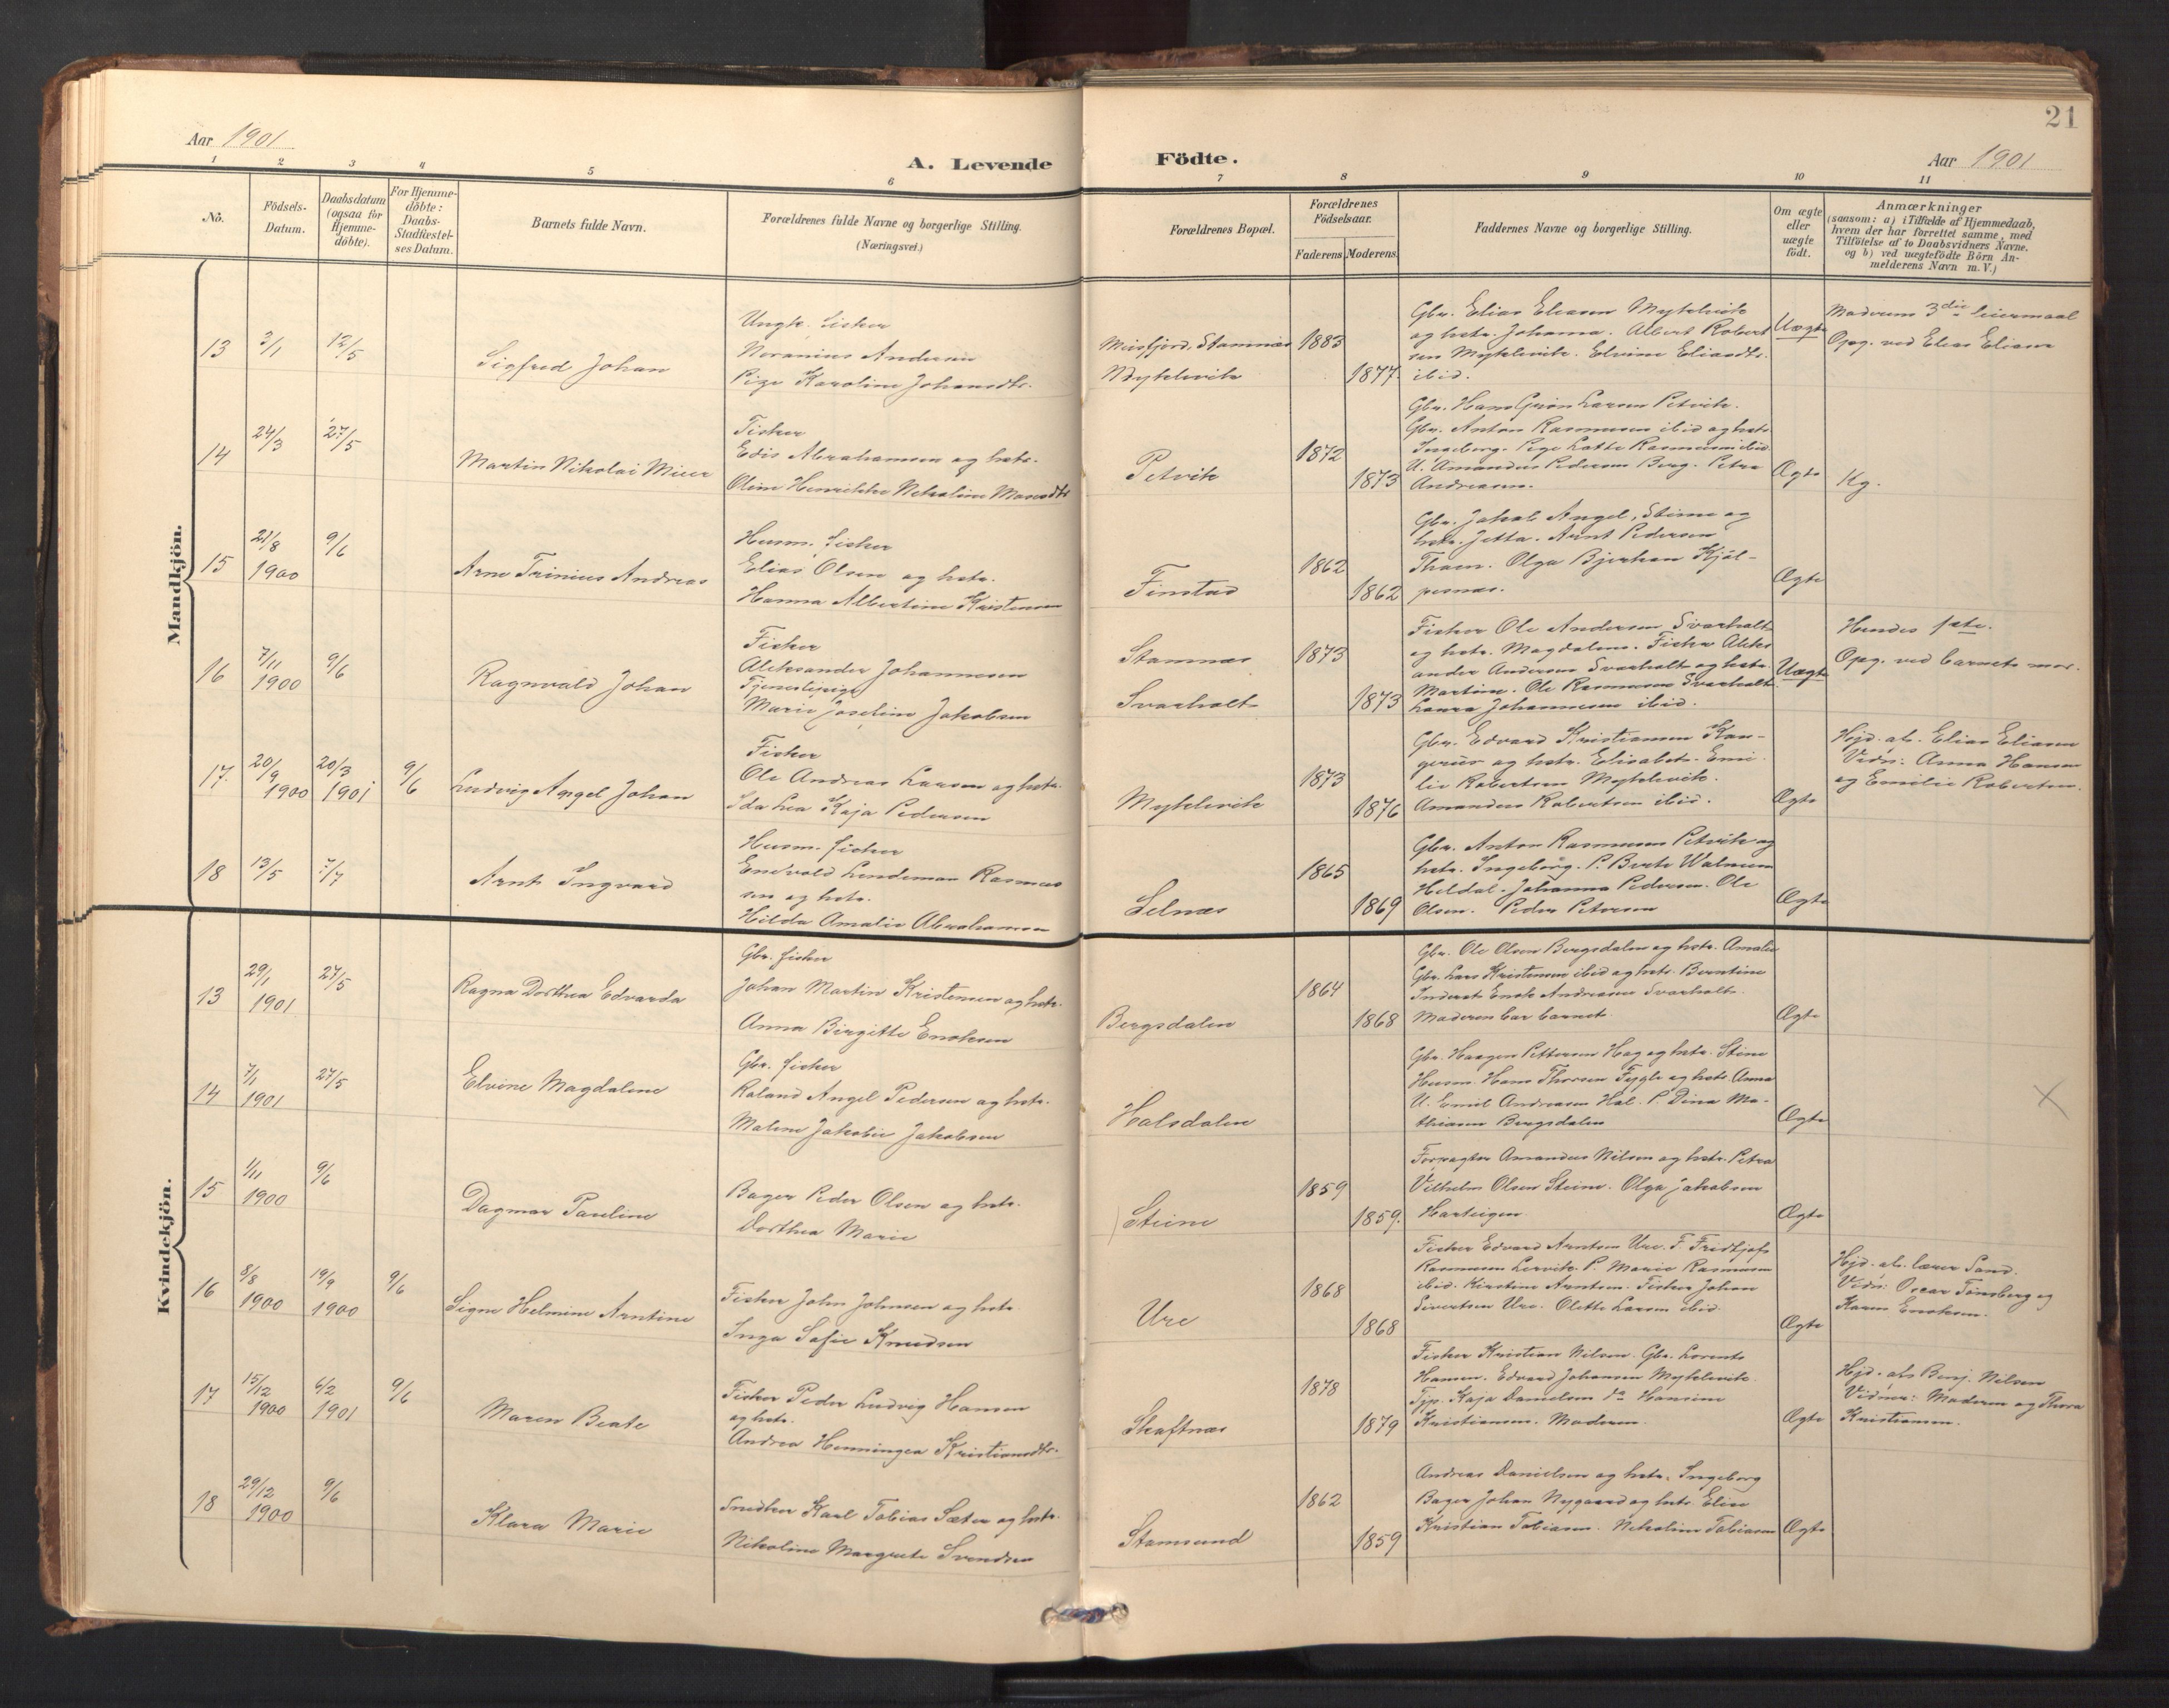 21
Aar 1901
A. Levende Födte.
Aar 1901
1 2 3 4 5 6 7 8 9 10 11
No.
Födsels-
Datum.
Daabsdatum
(ogsaa för
Hjemme-
döbte).
For Hjemme-
döbte:
Daabs-
Stadfæstel-
ses Datum.
Barnets fulde Navn.
Forældrenes fulde Navne og borgerlige Stilling.
(Næringsvei.)
Forældrenes Bopæl.
Forældrenes
Födselsaar.
Faderens Moderens.
Faddernes Navne og borgerlige Stilling.
Om ægte
eller
uægte
födt.
Anmærkninger
(saasom: a) i Tilfælde af Hjemmedaab,
hvem der har forrettet samme, med
Tilföielse af to Daabsvidners Navne,
og b) ved uægtefödte Börn An-
melderens Navn m. V.)
Mandkjön.
13 3/1 12/5
Sigfred Johan
Ungk. fisker
Noranius Andersen
Pige Karoline Johansdtr.
Meisfjord. Stamnæs
Myklevik
1883
1877.
Gbr. Elias Eliasen Myklevik
og hstr. Johanna. Albert Robert
sen Myklevik. Elvine Eliasdtr.
ibid.
Uægte
Moderens 3die Leiermaal
Opg. ved Elias Eliasen
14 24/3 27/5
Martin Nikolai Mier
Fisker
Edis Abrahamsen og hstr.
Oline Henrikke Nekoline Monsdtr
Petvik
1872
1873
Gbr. Hans Grön Larsen Petvik.
Gbr. Anton Rasmussen ibid og hstr.
Ingeborg. Pige Lotte Rasmussen ibid.
U. Amandus Pedersen Berg. Petra
Andreasen.
Ægte
Kg.
15 21/8 1900 9/6
Arne Trinius Andreas
Husm. fisker
Elias Olsen og hstr.
Hanna Albertine Kristensen
Finstad
1862
1862
Gbr. Jakob Angel, Steine og
hstr. Jetta. Arnt Pedersen
Thoen. Olga Bjerkan Kjöl-
pesnæs.
Ægte
16 7/11 1900 9/6
Ragnvald Johan
Fisker
Aleksander Johannesen
Tjenestepige
Marie Joseline Jakobsen
Stamnæs
Svarholt
1873
1873
Fisker Ole Andersen Svarholt
og hstr. Magdalena. Fisker Aleks
ander Andersen Svarholt og hstr.
Martine. Ole Rasmussen Svarholt
Laura Johannesen ibid.
Uægte
Hendes 1ste.
Opg. ved barnets mor.
17. 20/9 1900 20/3 1901 9/6
Ludvig Angel Johan
Fisker
Ole Andreas Larsen og hstr.
Ida Lea Kaja Pedersen
Myklevik
1873
1876
Gbr. Edvard Kristiansen Kan-
geriis og hstr. Elisabet. Emi-
lie Robertsen Myklevik.
Amandus Robertsen ibid.
Ægte
Hjd. af. Elias Eliasen
Vidn: Anna Hansen
og Emilie Robertsen.
18 13/5 7/7
Arnt Ingvard
Husm. fisker
Endvold Lindeman Rasmus
sen og hstr.
Hilda Amalie Abrahamsen
Selnæs
1865
1869
Gbr. Anton Rasmussen Petvik og
hstr. Ingeborg. P. Berte Walnum
Heldal. Johanna Pedersen. Ole
Olsen. Peder Petersen
Ægte
Kvindekjön.
13 29/1 1901 27/5
Ragna Dorthea Edvarda
Gbr. fisker
Johan Martin Kristensen og hstr.
Anna Birgitte Enoksen
Bergsdalen
1864
1868
Gbr. Ole Olsen Bergsdalen og hstr. Amalie
Gbr. Lars Kristensen ibid og hstr. Berntine
Inderst Enok Andreasen Svarholt.
Moderen bar barnet.
Ægte
14 7/1 1901 27/5
Elvine Magdalene
Gbr. fisker
Roland Angel Pedersen og hstr.
Malene Jakobie Jakobsen
Holsdalen
Gbr. Haagen Pettersen Hag og hstr. Stine
Husm. Hans Thorsen Fygle og hstr. Anna
U. Emil Andreasen Hol. P. Dina Ma-
thiasen Bergsdalen
Ægte
15 1/11 1900 9/6
Dagmar Pauline
Bager Peder Olsen og hstr.
Dorthea Marie
Steine
1859
1859.
Forpagter Amandus Nilsen og hstr. Petra
Vilhelm Olsen Steine. Olga Jakobsen
Hartvigen
Ægte
16 8/8 1900 19/9 1900 9/6
Signe Helmine Arntine
Fisker John Johnsen og hstr
Inga Sofie Knudsen
Ure
1868
1868
Fisker Edvard Arntsen Ure. F. Fridtjof
Rasmussen Lervik. P. Marie Rasmussen
ibid. Kirstine Arntsen. Fisker Johan
Sivertsen Ure. Olette Larsen ibid.
Ægte
Hjd. af. lærer Sand.
Vidn: Oscar Tönsberg og
Karen Enoksen.
17 15/12 1900 6/2 1901 9/6
Maren Beate
Fisker Peder Ludvig Hansen
og hstr.
Andrea Henningea Kristiansdtr.
Skaftnæs
1878
1879
Fisker Kristian Nilsen. Gbr. Lorents
Hansen. Edvard Johansen Myklevik.
Tjp. Kaja Danielsen do Hansine
Kristiansen. Moderen.
Ægte
Hjd. af Benj. Nilsen
Vidner: Moderen og Thora
Kristiansen.
18 29/12 1900 9/6
Klara Marie
Snedker Karl Tobias Sæter og hstr.
Nikoline Margrete Svendsen
Stamsund
1862
1859
Andreas Danielsen og hstr. Ingeborg
Bager Johan Nygaard og hstr. Elise
Kristian Tobiasen. Nekoline Tobiasen
Ægte